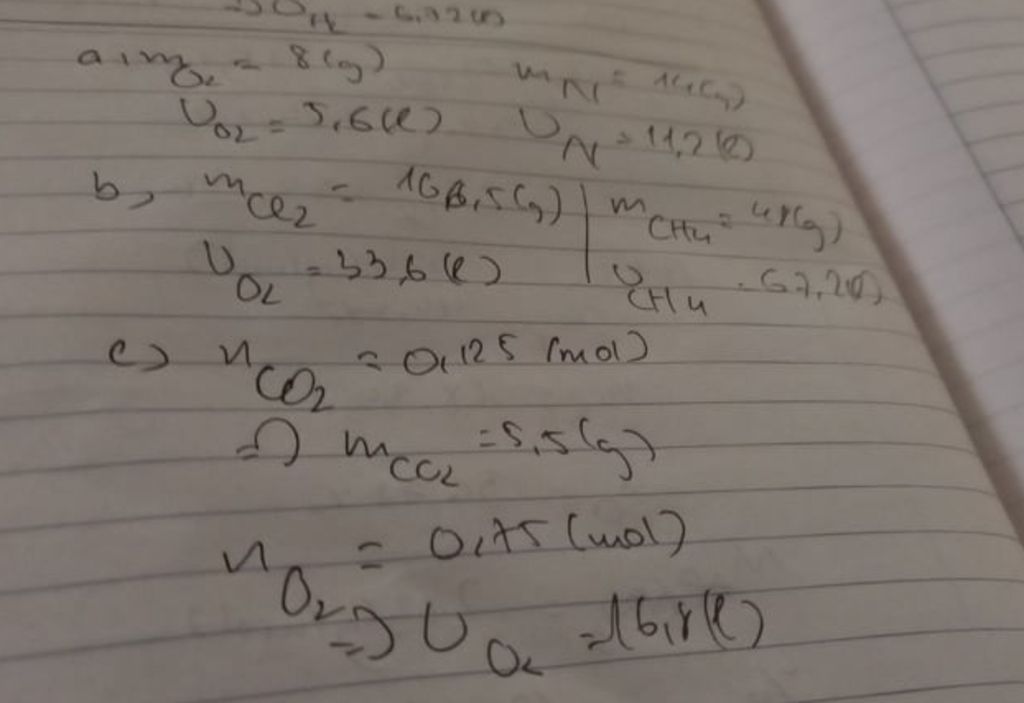 = 6,72(l)
a, mO2 = 8(g) mN = 14(g)
VO2 = 5,6(l) VN = 11,2(l)
b, mCl2 = 106,5(g) | mCH4 = 48(g)
VO2 = 33,6(l) VCH4 = 67,2(l)
c) nCO2 = 0,125 (mol)
=> mCO2 = 5,5(g)
nO2 = 0,75 (mol)
=> VO2 = 16,8(l)